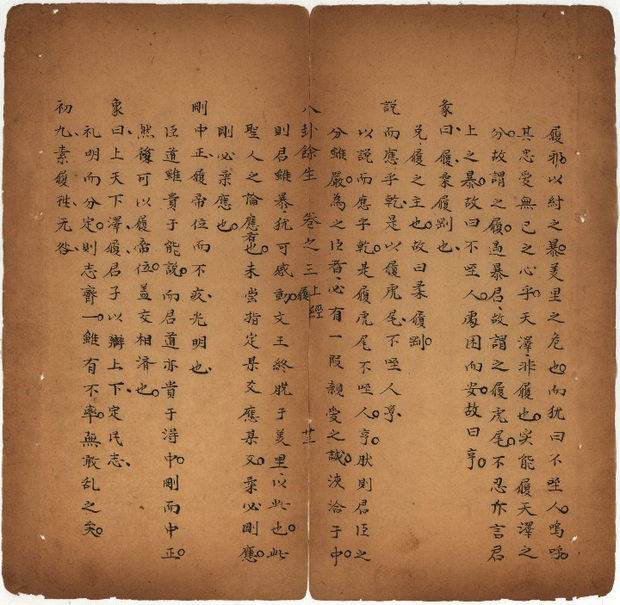 履邪以紂之暴羑里之危也而犹曰不咥人嗚呼
其忠受無已之心乎天澤非履也実能履天澤之
分故謂之履遇暴君故謂之履虎尾不忍亦言君
上之暴故曰不咥人處困而安故曰亨
彖曰履柔履剛也
兌履之主也故曰柔履剛
説而應乎乾是以履虎尾不咥人亨
以説而應乎乾是履虎尾不咥人亨肰則君臣之
分雖嚴為之臣者必有一段親受之誠浹洽于中
八卦餘生 卷之三 上經 履 廿
則君雖暴犹可感動文王終脱于羑里以此也此
聖人之論應者也未尝指定某爻應某爻柔必剛應
剛必柔應也
剛中正履帝位而不疚光明也
臣道雖貴于能說而君道亦貴于得中剛而中正
然後可以履帝位盖交相濟也
象曰上天下澤履君子以辯上下定民志
礼明而分定則志齊一雖有不率無敢乱之矣
初九素履徃无咎